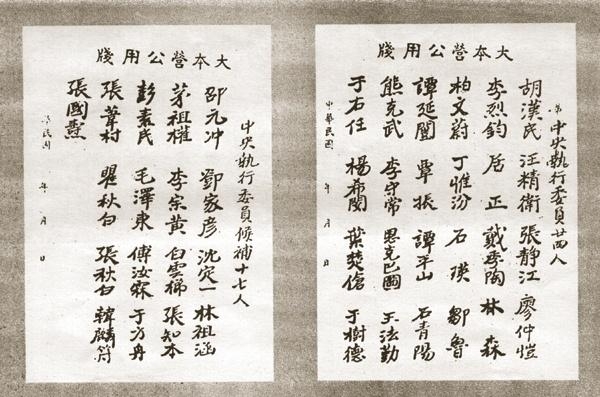 大本營公用牋
中央執行委員廿四人
胡漢民 汪精衛 張靜江 廖仲愷
李烈鈞 居正 戴季陶 林森
柏文蔚 丁惟汾 石瑛 鄒魯
譚延闓 覃振 譚平山 石青陽
熊克武 李守常 恩克巴圖 王法勤
于右任 楊希閔 葉楚傖 于樹德
中華民國 年 月 日
大本營公用牋
中央執行委員候補十七人
邵元冲 鄧家彥 沈定一 林祖涵
茅祖權 李宗黃 白雲梯 張知本
彭素民 毛澤東 傅汝霖 于方舟
張葦村 瞿秋白 張秋白 韓麟符
張國燾
民國 年 月 日